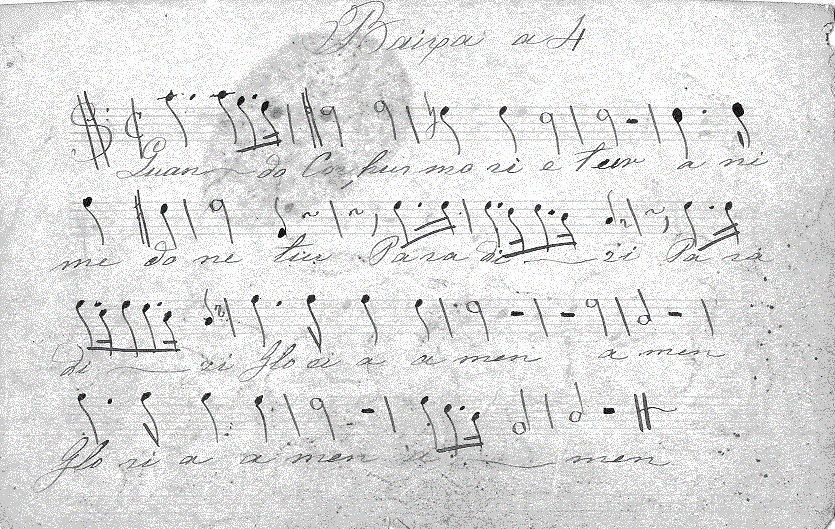 Baixa a 4
Quan do Corpus mo ri e tur a ni
me do ne tur Pa ra di si Pa ra
di si Glo ri a a men a men
Glo ri a a men a men